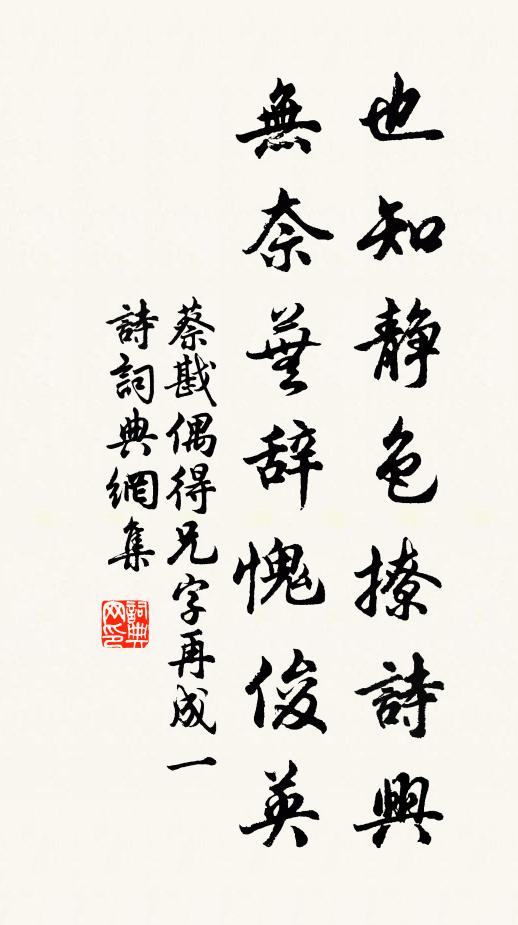 也知靜色撩詩興
無奈蕪辞愧俊英
蔡戡偶得兄字再成一
詩詞典網集
詞典網印